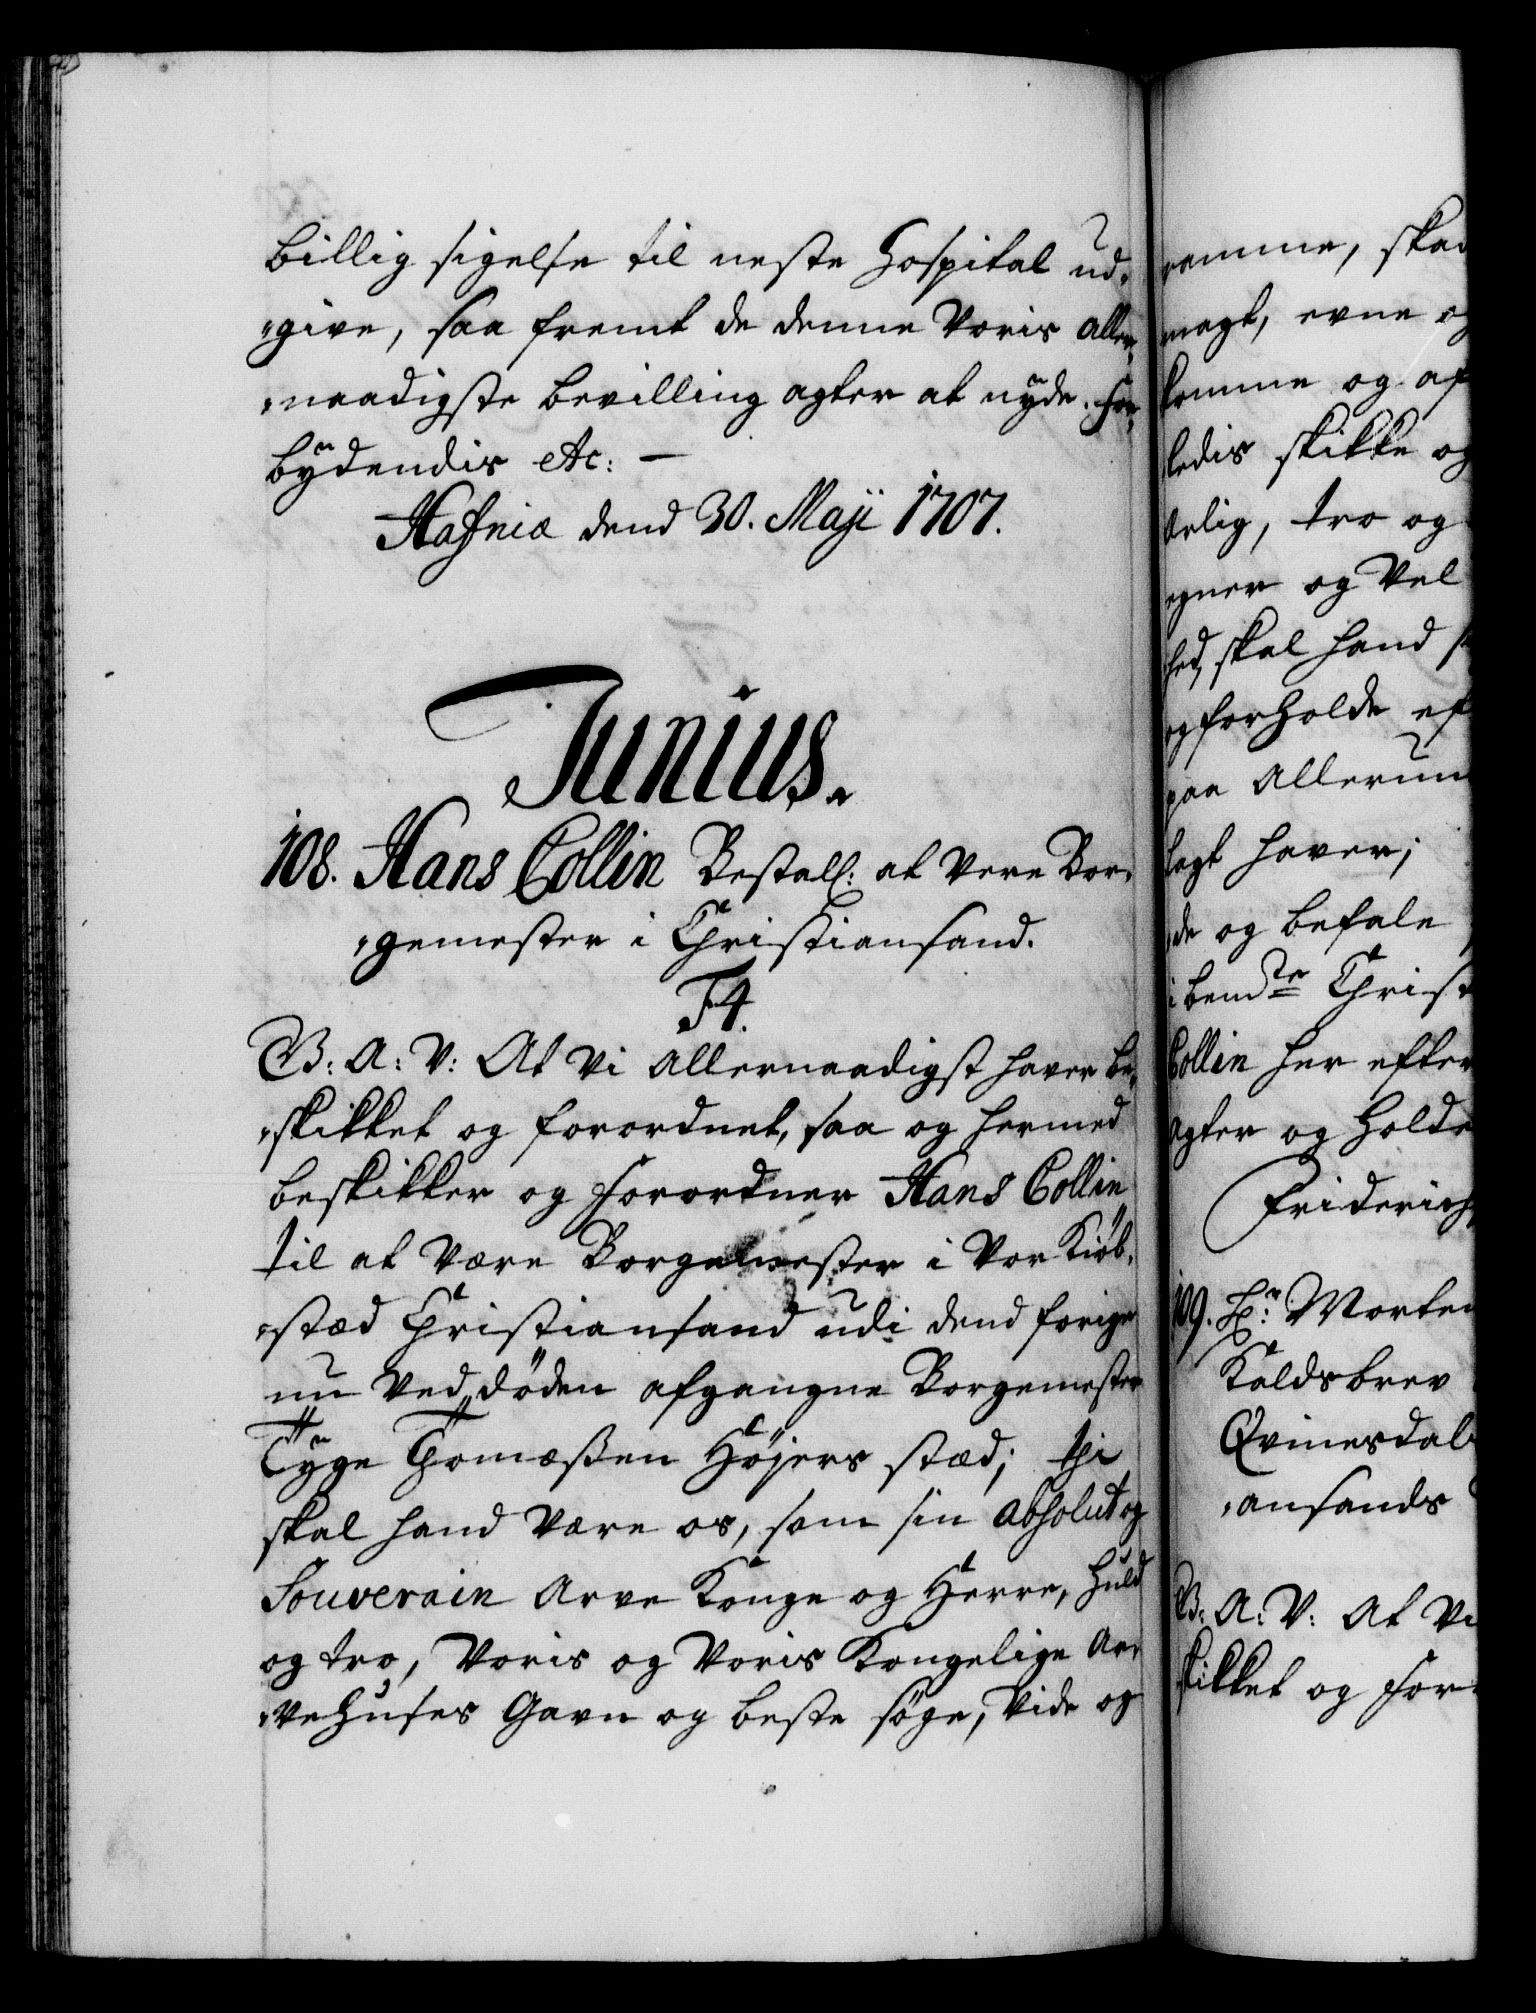 billig sigelse til neste Hospital ud,
,give, saa fremt de denne Voris aller,
,naadigste bevilling agter at nyde. For,
bydendis etc: —
Hafniæ dend 30. Maji 1707.
Junius.
108. Hans Collin Bestall: at Vere Bor,
,gemester i Christiansand.
F4.
G: A: V: At Vi allernaadigst haver be,
,skikket og forordnet, saa og hermed
beskikker og forordner Hans Collin
til at Være Borgemester i Vor Kiøb,
,stæd Christiansand udi dend forige
nu Ved døden afgangne Borgemester
Tyge Thomæßen Højers stæd; thi
skal hand Være os, som sin absolut og
Souverain Arve Konge og Herre, huld
og tro, Voris og Voris Kongelige Ar,
,vehuses Gavn og beste søge, Vide og
ramme, skad
magt, evne og
komme og af
ledis skikke og
ærlig, tro og
egner og Vel
hed, skal hand
og forholde ef
paa Allerun
lagt haver;
de og befale
i bemte Christ
Collin her efter
agter og holde
Friderichs
109. Hr: Morten
Kaldsbrev
Qvinesdal
,ansands
G: A: V: At Vi
skikket og for